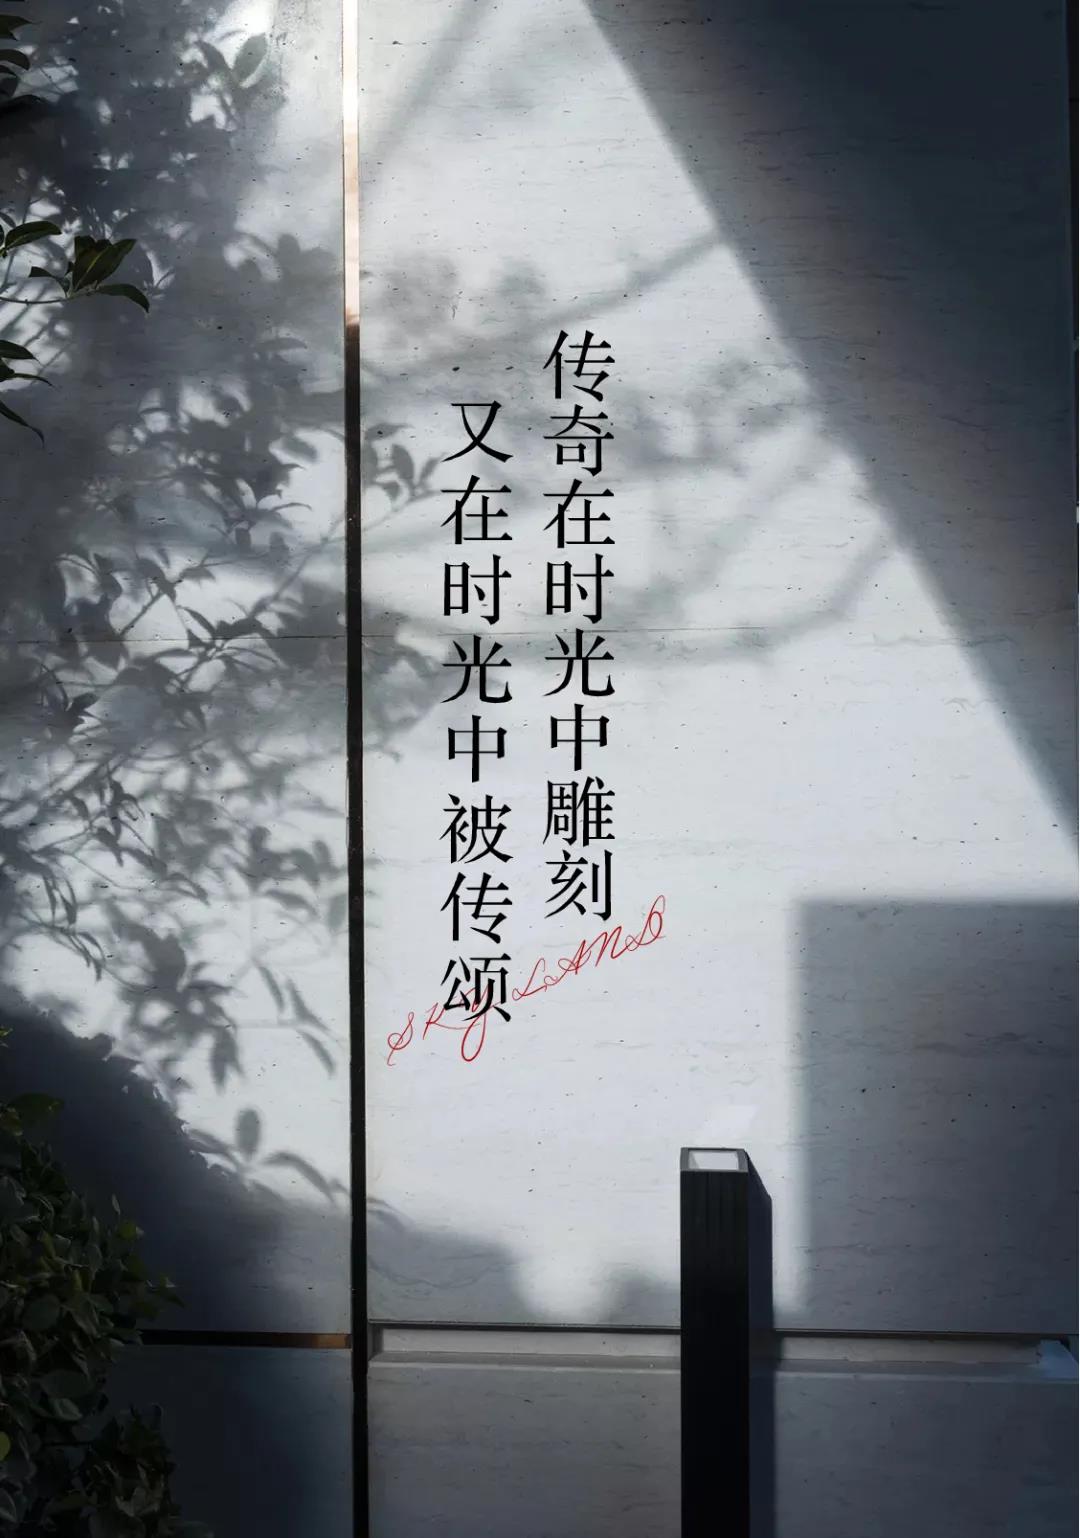 传奇在时光中雕刻
又在时光中被传颂
SKY LAND